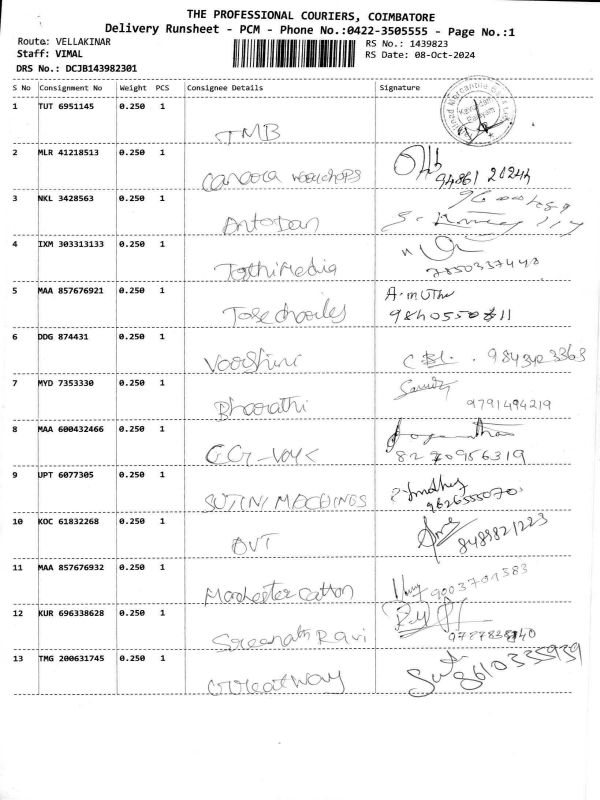 THE PROFESSIONAL COURIERS, COIMBATORE
Delivery Runsheet - PCM - Phone No.:0422-3505555 - Page No.:1
Route: VELLAKINAR
RS No.: 1439823
Staff: VIMAL
RS Date: 08-Oct-2024
DRS No.: DCJB143982301
S No Consignment No Weight PCS Consignee Details Signature
1 TUT 6951145 0.250 1
TMB
2 MLR 41218513 0.250 1
3 NKL 3428563 0.250 1
4 IXM 303313133 0.250 1
7850337448
5 MAA 857676921 0.250 1 A-mutha
6 DDG 874431 0.250 1
7 MYD 7353330 0.250 1
Bharathi 9791494219
8 MAA 600432466 0.250 1
8270956319
9 UPT 6077305 0.250 1
9626555070
10 KOC 61832268 0.250 1
8489821223
11 MAA 857676932 0.250 1
Manchester Cotton 9003701383
12 KUR 696338628 0.250 1
Sreenath Ravi
13 TMG 200631745 0.250 1
Great Way 8610335939